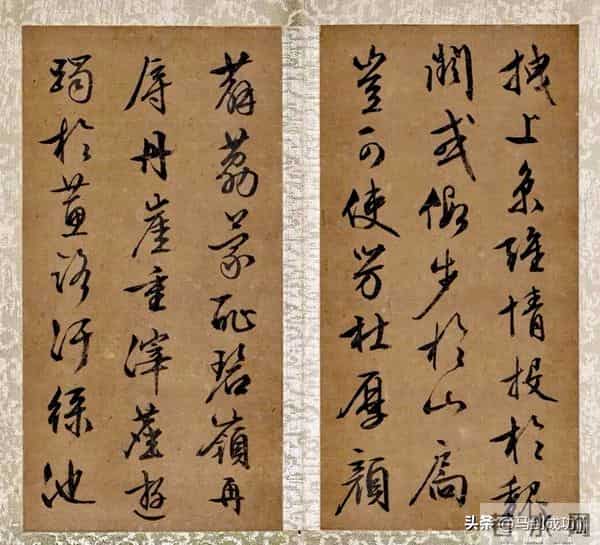 拽上京雖情投於魏
闕或假步於山扃
豈可使芳杜厚顏
薜荔蒙恥碧嶺再
辱丹崖重滓塵遊
躅於蕙路汙淥池
头条 @马到成功